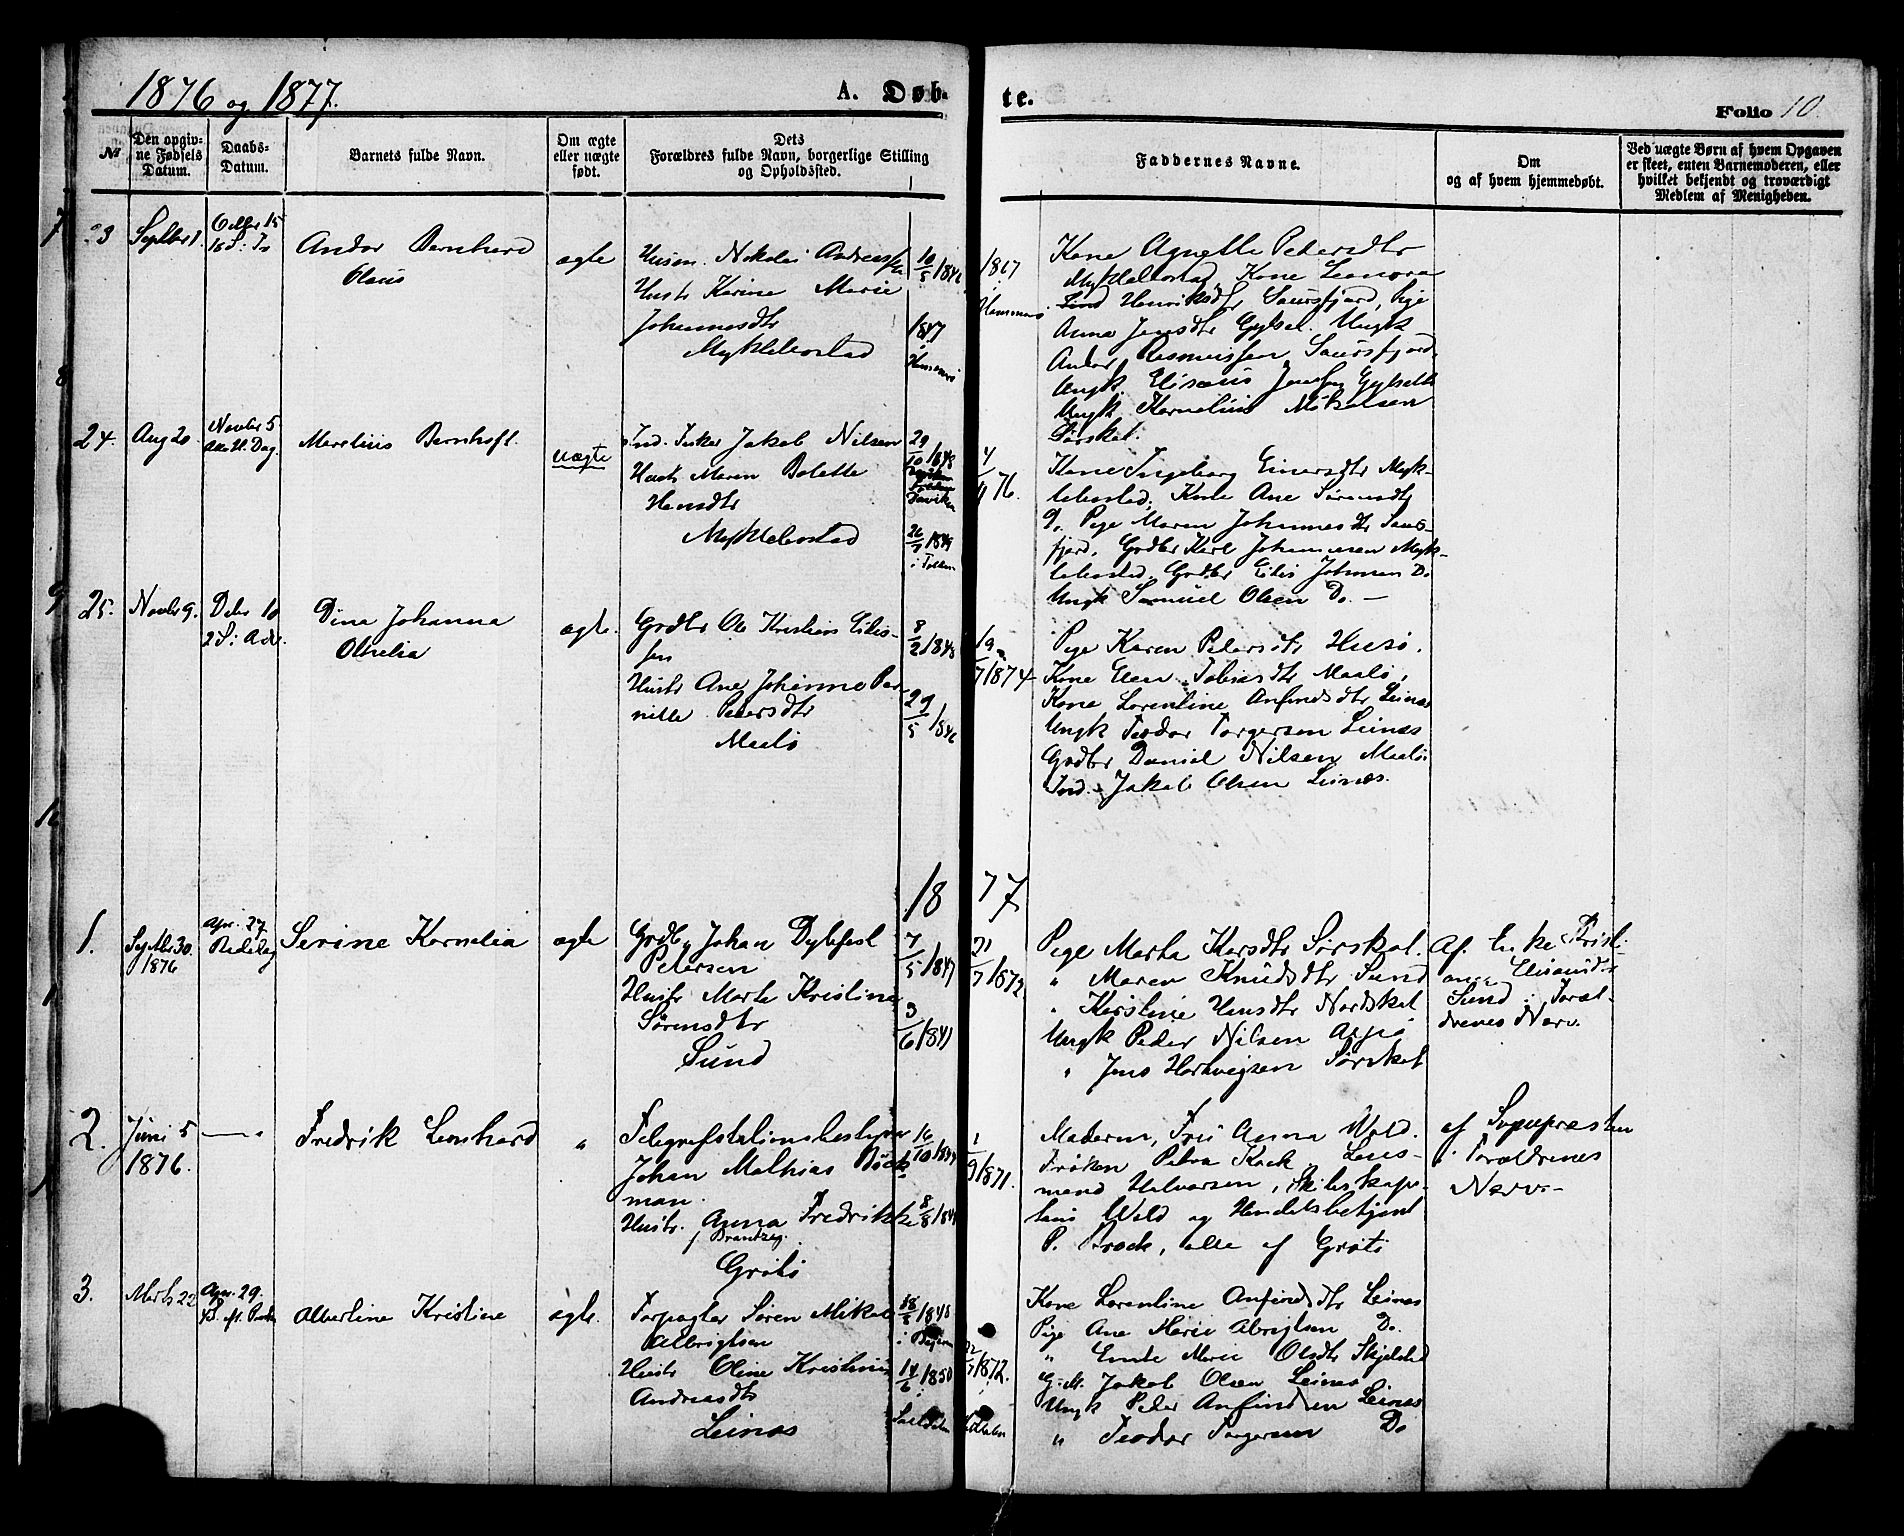 1876 og 1877.
A. Døb-
te.
Folio 10.
No
Den opgiv-
ne Fødsels
Datum.
Daabs-
Datum.
Barnets fulde Navn.
Om ægte
eller uægte
født.
Dets
Forældres fulde Navn, borgerlige Stilling
og Opholdssted.
Faddernes Navne.
Om
og af hvem hjemmedøbt.
Ved uægte Børn af hvem Opgaven
er skeet, enten Barnemoderen, eller
hvilket bekjendt og troværdigt
Medlem af Menigheden.
23
Septbr 1.
Octbr 15
Andor Bernhard
Olaus
ægte
Husm. Nikolai
Hustr Karine Marie
Johannesdtr
Myklebostad
10/5 1846
1847
1867
Kone Agnette Pedersdtr
Myklebostad, Kone Leonora
Henriksdtr Saursfjord, Pige
Anna Jensdtr Gylset. Ungk
Andor Rasmussen Saursfjord
Ungk. Elisæus Jensen
Ungk Kornelius Mikalsen
Sørskot.
24.
Aug 20.
Novbr 5
Marelius Bernhoft.
uægte
Ind. Jakob Nilsen
Hustr Maren Bolette
Hansdtr
Myklebostad
29/10 1848
26/7 1849
4/11 76.
Kone Ingeborg Einersdtr Myk-
lebostad, Kone Ane Sørensdtr
Do. Pige Maren Johannesdtr Saurs-
fjord. Grdbr Karl Johannesen Myk-
lebostad. Grdbr Eilis Johnsen Do
Ungk Samuel Olsen Do. —
25.
Novbr 9.
Debr 10
2 S. i Adv.
Dina Johanna
Othelia
ægte.
Grdbr Ole Kristian Eilis-
sen
Hustr Ane Johanna Per-
nille Pedersdtr
Maalø
8/2 1848
29/5 1846
19/7 1874
Pige Karen Pedersdtr Husø.
Kone Elen Tobiasdtr Maalø,
Kone Lorentine Anfindsdtr Leines
Ungk Teodor Torgersen Leines
Grdbr Daniel Nilsen Maalø.
Ind. Jakob Olsen Leines.
1877
1.
Septbr 30.
1876
Apr. 27
Bededag
Serine Kornelia
ægte
Grdb. Johan Dyblfest
Petersen
Hustr Marta Kristina
Sørensdtr
Sund
7/5 1847
3/6 1841
21/7 1872
Pige Marta Larsdtr Sørskot.
" Maren Knudsdtr Sund
" Kirstine Hansdtr Nordskot
Ungk Peder Nilsen
" Jens Hartvigsen Sørskot
Af Enke Kristi-
ane
Sund i Foræl-
drenes Nærv.
2.
Juni 5
1876.
— "
Fredrik Leonhard
"
Telegrafstationsbestyrer
Johan Mathias Böck-
man.
Hustr. Anna Fredrikke
f. Brantzeg.
Grøtø
8/8
1/9 1871.
Moderen, Fru Anna Wold.
Frøken Petra Koch, Lens-
mand Halvorsen, Skibskap-
tein Wold og Handelsbetjent
P. Brock, alle af Grøtø
af Sognepræsten
i Forældrenes
Nærv. —
3.
Marts 22
Apr. 29.
Albertine Kristine
ægte.
Forpagter Søren Mikal
Albrigtsen
Hustr Oline Kristine
Andreasdtr
Leines
14/6 1850
1872.
Kone Lorentine Anfindsdtr Leines
Pige Ane Marie Albrigtsen Do.
" Marie Olsdtr Skjelstad
G.M. Jakob Olsen Leines
Ungk Peder Anfindsen Leines
" Teodor Torgersen Do